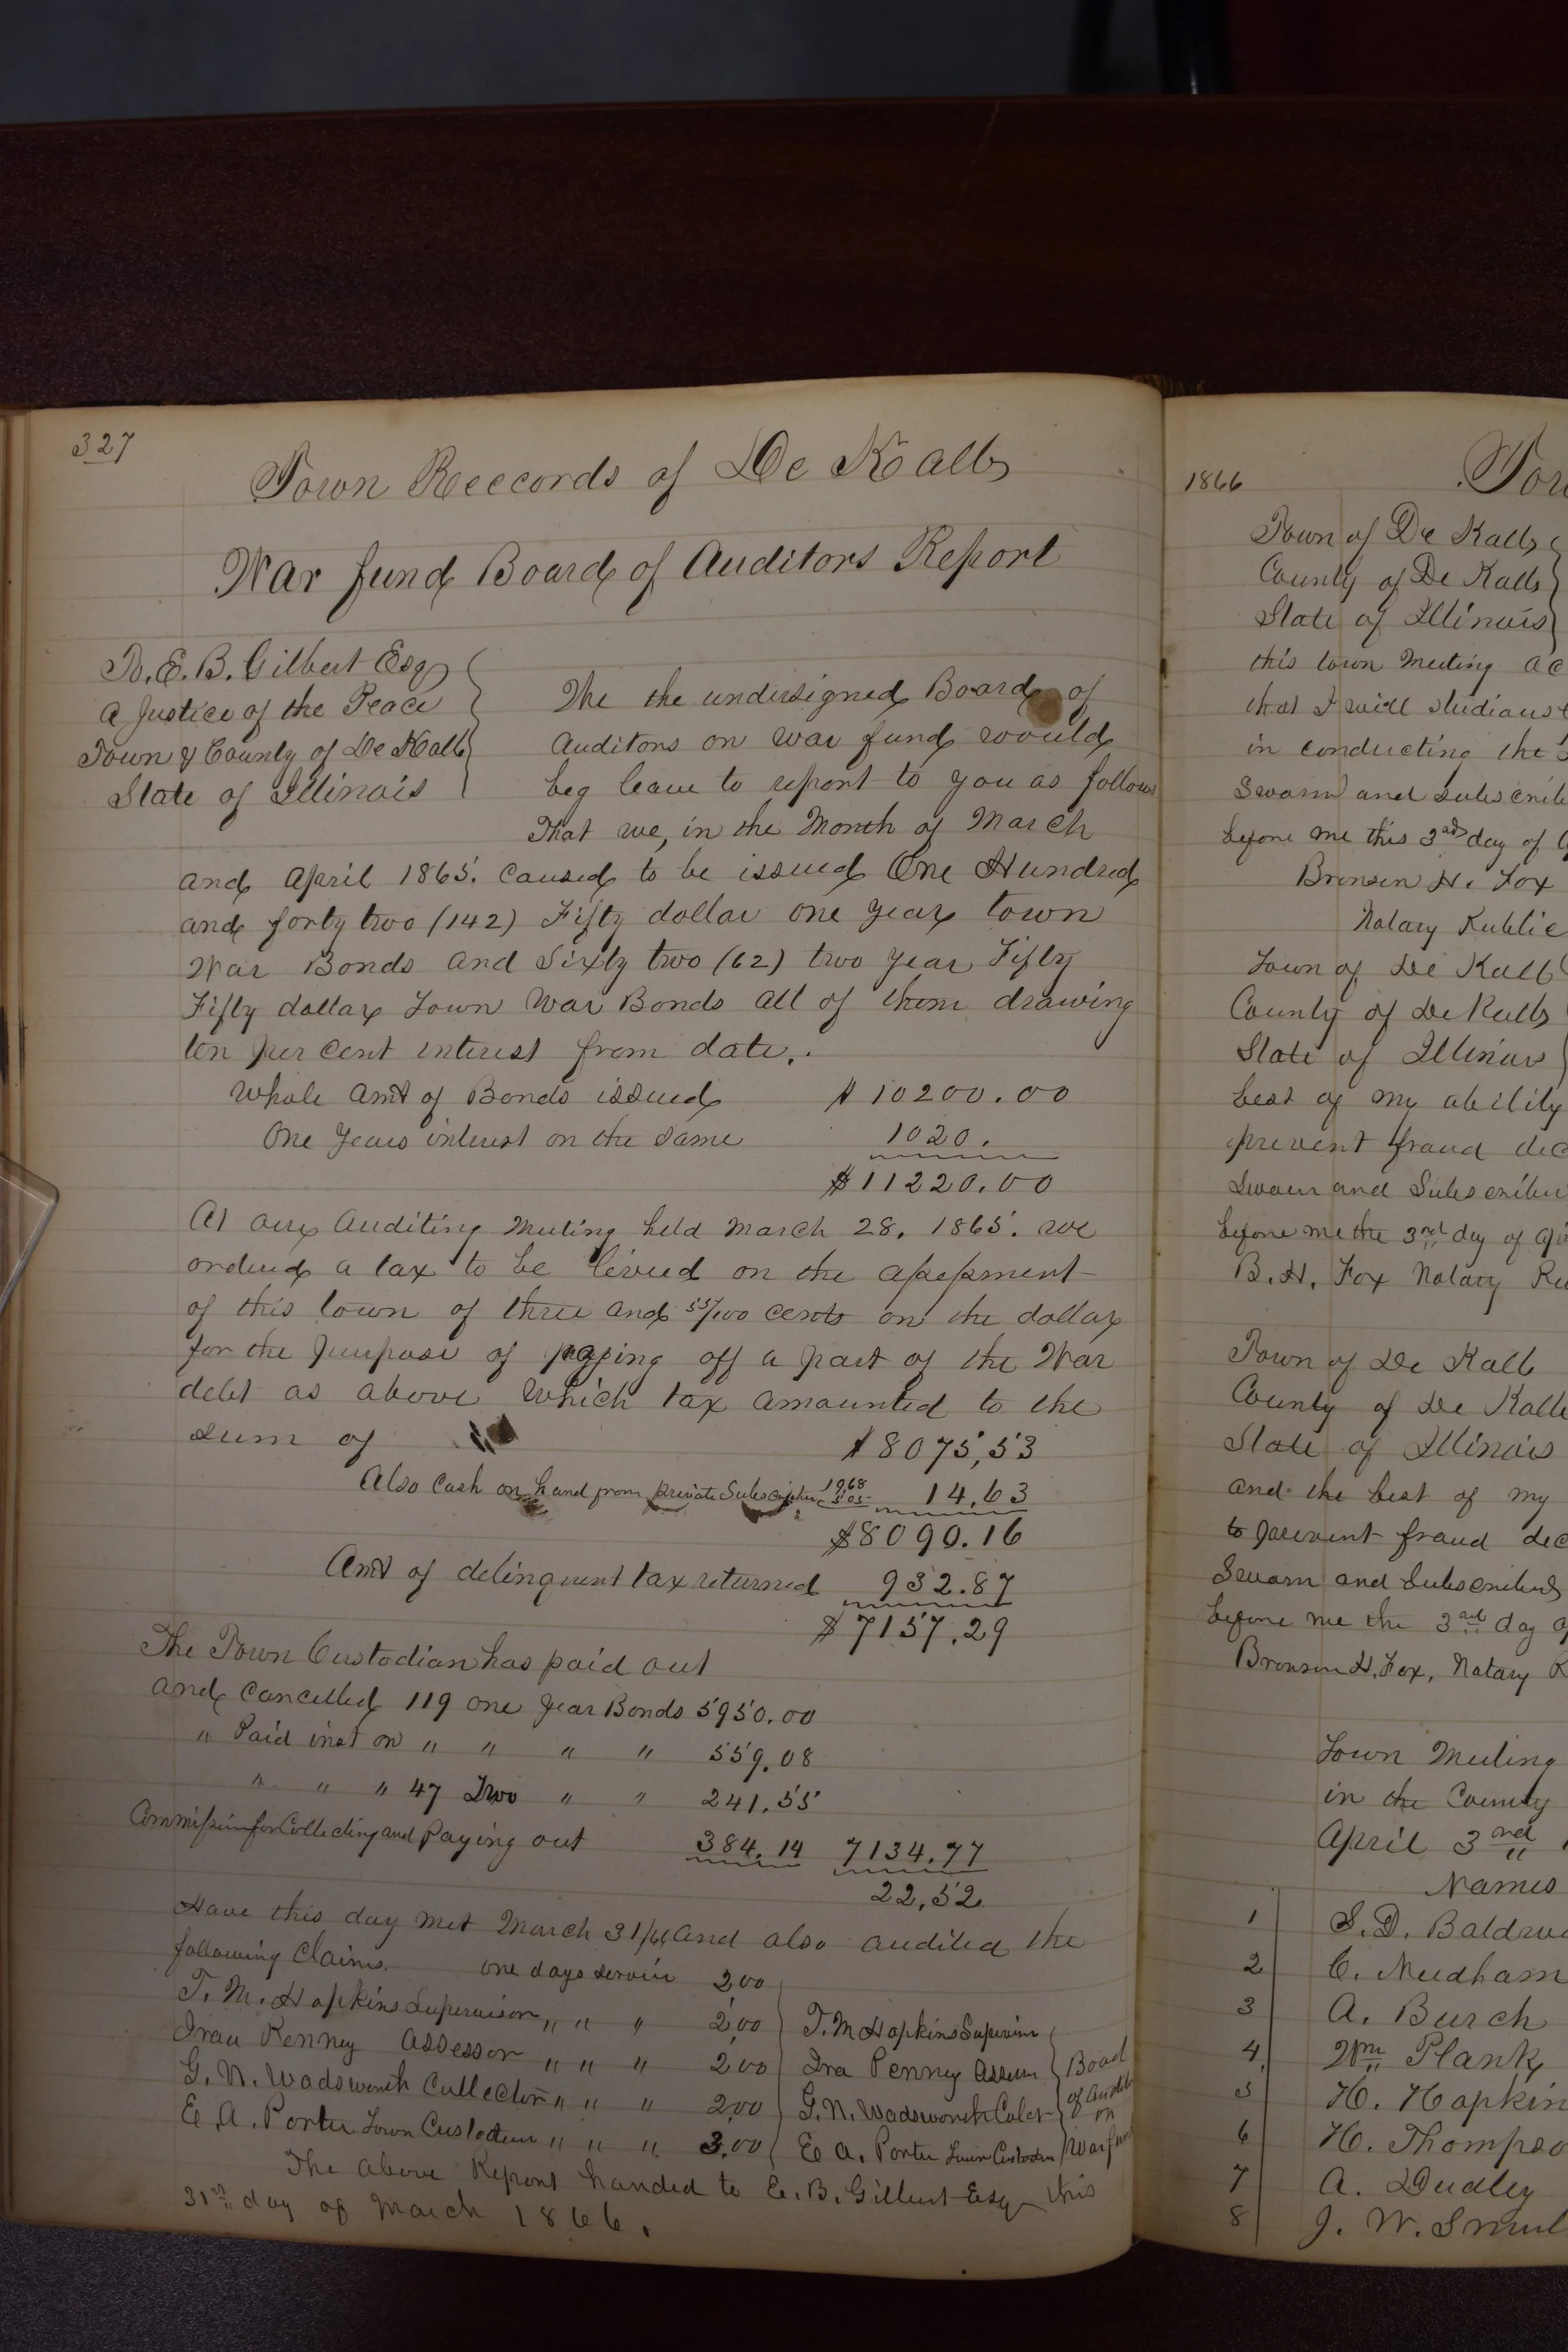 327
Town Reccords of De Kalb
War fund Board of Auditors Report
To. E. B. Gilbert Esq
a Justice of the Peace
Town & County of De Kalb
State of Illinois
The the undersigned Board of
Auditors on war fund would
beg leave to report to you as follows
That we, in the Month of March
and April 1865. caused to be issued One Hundred
and forty two (142) Fifty dollar one year town
War Bonds and Sixty two (62) two year Fifty
Fifty dollar Town War Bonds all of them drawing
ten per cent interest from date.
Whole Amt of Bonds issued $10200.00
One Years interest on the same 1020.
$11220.00
At our Auditing Meeting held March 28, 1865. we
ordered a tax to be levied on the assessment
of this town of three and 55/100 cents on the dollar
for the purpose of paying off a part of the War
debt as above which tax amounted to the
sum of $8075,53
Also Cash on hand from private Subscription 1968 505 14,63
$8090.16
Amt of delinquent tax returned 932.87
$7157.29
The Town Custodian has paid out
and Cancelled 119 one year Bonds 5950.00
" Paid inst on " " " " 559,08
" " " 47 Two " " 241,55
Commission for Collecting and paying out 384,14 7134.77
22,52
Have this day met March 31/66 and also audited the
following Claims. one days service 2,00
T. M. Hopkins Supervisor " " " 2,00
Irau Penney Assessor " " " 2,00
G. N. Wadsworth Collector " " " 2,00
E. A. Porter Town Custodian " " " 3,00
T. M Hopkins Supervisor
Ira Penney Assessor
G. N. Wadsworth Colct
E A. Porter Town Custodian
Board
of Audit
on
War fund
The above Report handed to E. B. Gilbert Esq this
31st day of March 1866.
1866
Tow
Town of De Kalb
County of De Kalb
State of Illinois
this town Meeting ac
that I will studious
in conducting the
Sworn and subscrib
before me this 3rd day of
Bronson H. Fox
Notary Public
Town of De Kalb
County of De Kalb
State of Illinois
best of my ability
prevent fraud dec
Sworn and Subscriber
before me the 3rd day of Ap
B. H. Fox Notary Pu
Town of De Kalb
County of De Kalb
State of Illinois
and the best of my
to prevent fraud dec
Sworn and Subscribed
before me the 3rd day o
Bronson H. Fox, Notary P
Town Meeting
in the County
April 3rd
Names
1 S. D. Baldwi
2 C. Needham
3 A. Burch
4 Wm Plank
5 H. Hopkin
6 H. Thompso
7 A. Dudley
8 J. W. Smul